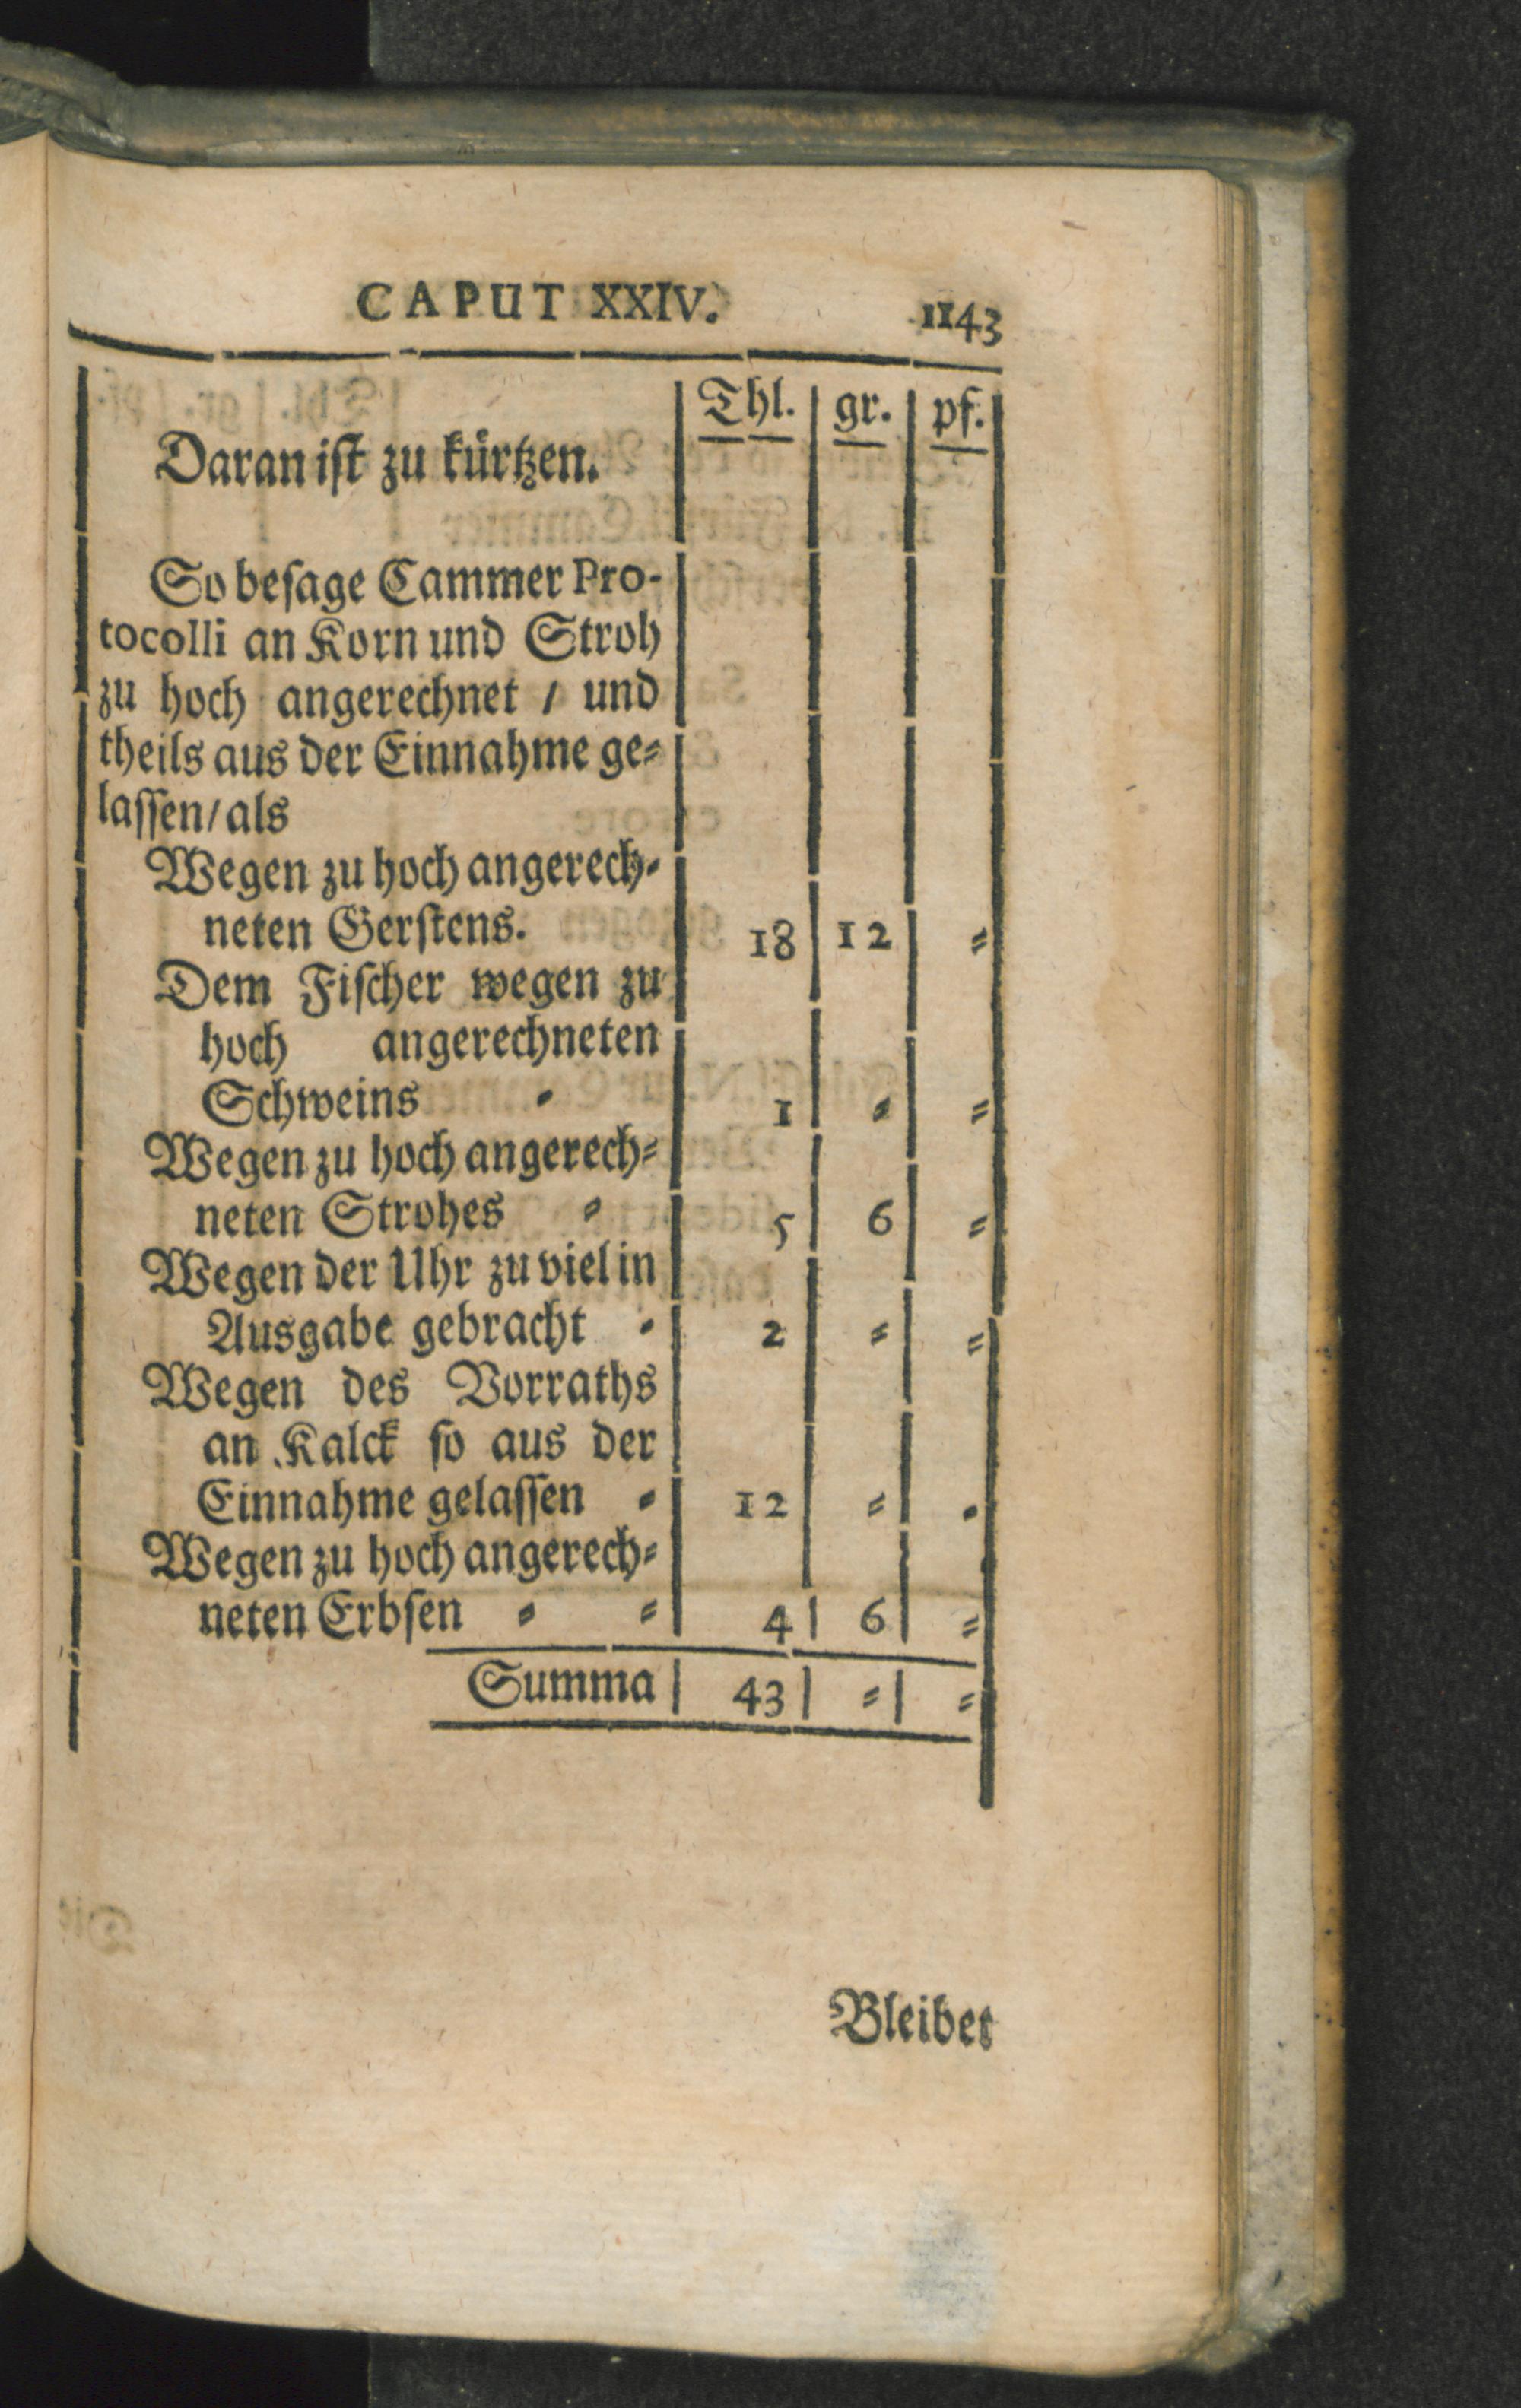 CAPUT XXIV. 1143
Thl. gr. pf.
Daran ist zu kürtzen.
So besage Cammer Pro-
tocolli an Korn und Stroh
zu hoch angerechnet / und
theils aus der Einnahme ge⸗
lassen / als
Wegen zu hoch angerech⸗
neten Gerstens. 18 12 ⸗
Dem Fischer wegen zu
hoch angerechneten
Schweins ⸗ 1 ⸗ ⸗
Wegen zu hoch angerech⸗
neten Strohes ⸗ 5 6 ⸗
Wegen der Uhr zu viel in
Ausgabe gebracht ⸗ 2 ⸗ ⸗
Wegen des Vorraths
an Kalck so aus der
Einnahme gelassen ⸗ 12 ⸗ ⸗
Wegen zu hoch angerech⸗
neten Erbsen ⸗ ⸗ 4 6 ⸗
Summa 43 ⸗ ⸗
Bleibet